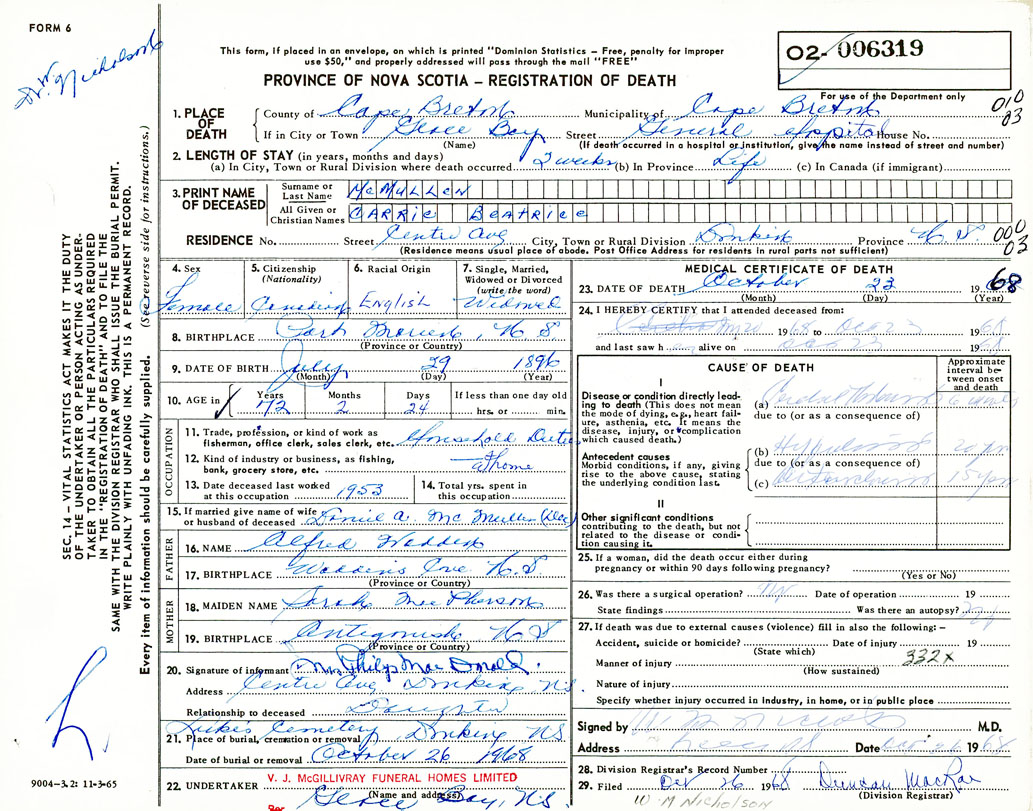 FORM 6
Dr. W. Nicholson
This form, if placed in an envelope, on which is printed "Dominion Statistics – Free, penalty for improper
use $50," and properly addressed will pass through the mail "FREE"
PROVINCE OF NOVA SCOTIA – REGISTRATION OF DEATH
02- 006319
For use of the Department only
010
03
SEC. 14 – VITAL STATISTICS ACT MAKES IT THE DUTY
OF THE UNDERTAKER OR PERSON ACTING AS UNDER-
TAKER TO OBTAIN ALL THE PARTICULARS REQUIRED
IN THE "REGISTRATION OF DEATH" AND TO FILE THE
SAME WITH THE DIVISION REGISTRAR WHO SHALL ISSUE THE BURIAL PERMIT.
WRITE PLAINLY WITH UNFADING INK. THIS IS A PERMANENT RECORD.
Every item of information should be carefully supplied. (See reverse side for instructions.)
1. PLACE OF DEATH
County of Cape Breton Municipality of Cape Breton
If in City or Town Glace Bay Street General Hospital House No.
(Name) (If death occurred in a hospital or institution, give the name instead of street and number)
2. LENGTH OF STAY (in years, months and days)
(a) In City, Town or Rural Division where death occurred 2 weeks (b) In Province Life (c) In Canada (if immigrant)
3. PRINT NAME OF DECEASED
Surname or Last Name McMULLEN
All Given or Christian Names CARRIE BEATRICE
RESIDENCE No. Street Centre Ave City, Town or Rural Division Donkin Province N.S.
000
03
(Residence means usual place of abode. Post Office Address for residents in rural parts not sufficient)
4. Sex Female
5. Citizenship (Nationality) Canadian
6. Racial Origin English
7. Single, Married, Widowed or Divorced (write the word) Widowed
8. BIRTHPLACE Port Morien, N S
(Province or Country)
9. DATE OF BIRTH July 29 1896
(Month) (Day) (Year)
10. AGE in Years 72 Months 2 Days 24 If less than one day old hrs. or min.
OCCUPATION
11. Trade, profession, or kind of work as
fisherman, office clerk, sales clerk, etc. Household Duties
12. Kind of industry or business, as fishing,
bank, grocery store, etc. at home
13. Date deceased last worked
at this occupation 1953
14. Total yrs. spent in
this occupation
15. If married give name of wife
or husband of deceased Daniel A. McMullen (Dec)
FATHER
16. NAME Alfred Wadden
17. BIRTHPLACE Waddens Cove N.S.
(Province or Country)
MOTHER
18. MAIDEN NAME Sarah MacPherson
19. BIRTHPLACE Antigonish N S
(Province or Country)
20. Signature of informant Mrs. Philip MacDonald.
Address Centre Ave Donkin, N.S.
Relationship to deceased Daughter
21. Place of burial, cremation or removal Cemetery Donkin NS
Date of burial or removal October 26 1968
22. UNDERTAKER V. J. McGILLIVRAY FUNERAL HOMES LIMITED
(Name and address)
Per Glace Bay, N.S
9004–3.2: 11-3-65
MEDICAL CERTIFICATE OF DEATH
23. DATE OF DEATH October 23 1968
(Month) (Day) (Year)
24. I HEREBY CERTIFY that I attended deceased from:
1968 to Oct 23 1968
and last saw h er alive on Oct 23 1968
CAUSE OF DEATH
Approximate interval between onset and death
I
Disease or condition directly leading to death (This does not mean the mode of dying, e.g., heart failure, asthenia, etc. It means the disease, injury, or complication which caused death.)
(a)
due to (or as a consequence of)
Antecedent causes
Morbid conditions, if any, giving rise to the above cause, stating the underlying condition last.
(b)
due to (or as a consequence of)
(c)
II
Other significant conditions
contributing to the death, but not related to the disease or condition causing it.
25. If a woman, did the death occur either during
pregnancy or within 90 days following pregnancy?
(Yes or No)
26. Was there a surgical operation? No Date of operation 19
State findings Was there an autopsy?
27. If death was due to external causes (violence) fill in also the following: –
Accident, suicide or homicide? Date of injury 19
(State which)
Manner of injury 332X
(How sustained)
Nature of injury
Specify whether injury occurred in industry, in home, or in public place
Signed by M.D.
Address Date 1968
28. Division Registrar's Record Number
29. Filed Oct 26 1968 Duncan MacRae
(Division Registrar)
W M NICHOLSON